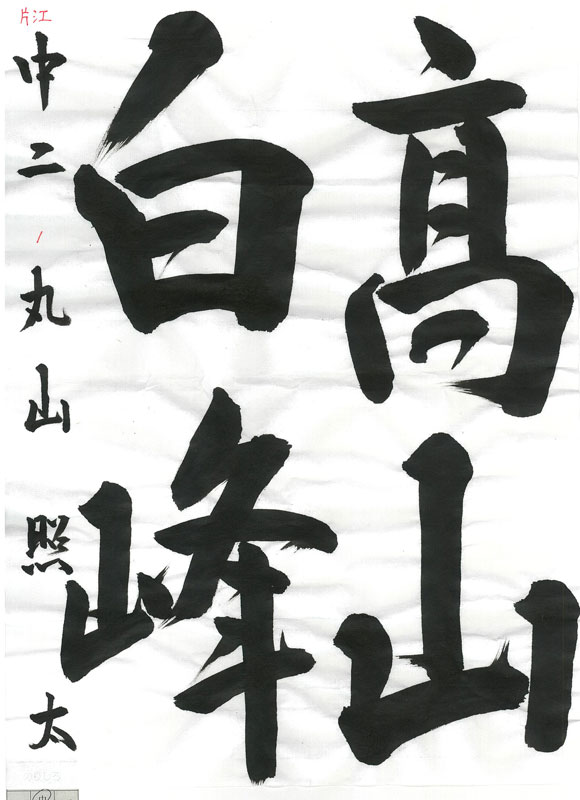 高山
白峰
中二 丸山 照太
片江